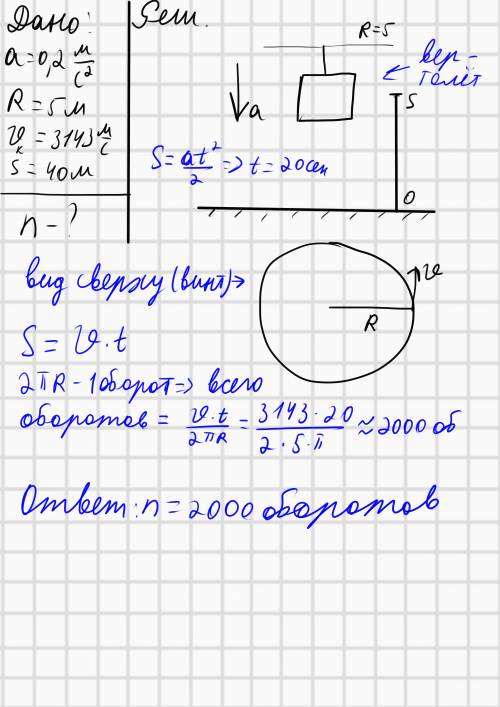 Дано:
a=0,2 м/с²
R=5м
υк=3143 м/с
S=40м
n-?
Реш.
R=5
вер-
толёт
a
S
O
S=at²/2 => t=20сек
вид сверху (винт)→
υ
R
S=υ·t
2πR-1 оборот => всего
оборотов = υ·t/2πR = 3143·20/2·5·π ≈ 2000 об
Ответ: n=2000 оборотов